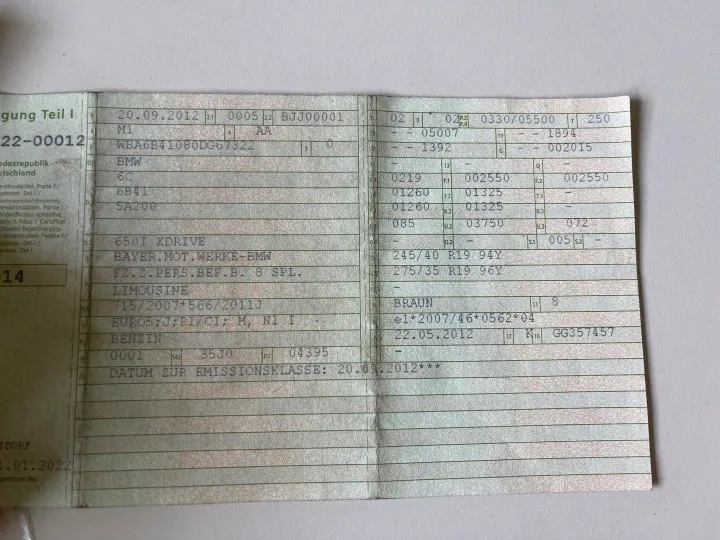 gung Teil I
22-00012
ndesrepublik
eutschland
14
TDORF
1.01.2022
20.09.2012 2.1 0005 2.2 BJJ00001
M1 4 AA
WBA6B41080DG67322 3 0
BMW
6C
6B41
5A200
650I XDRIVE
BAYER.MOT.WERKE-BMW
FZ.Z.PERS.BEF.B. 8 SPL.
LIMOUSINE
715/2007*566/2011J
EURO5;J;PI/CI; M, N1 I
BENZIN
0001 35J0 04395
DATUM ZUR EMISSIONSKLASSE: 20.09.2012***
02 9 02 P.2 P.4 0330/05500 T 250
- - 05007 19 - - 1894
- - 1392 G - - 002015
- 13 - Q -
0219 F.1 002550 F.2 002550
01260 7.2 01325 -
01260 8.2 01325 -
085 U.2 03750 U.3 072
- - S.1 005 S.2 -
245/40 R19 94Y
275/35 R19 96Y
BRAUN 11 8
e1*2007/46*0562*04
22.05.2012 17 K 16 GG357457
-